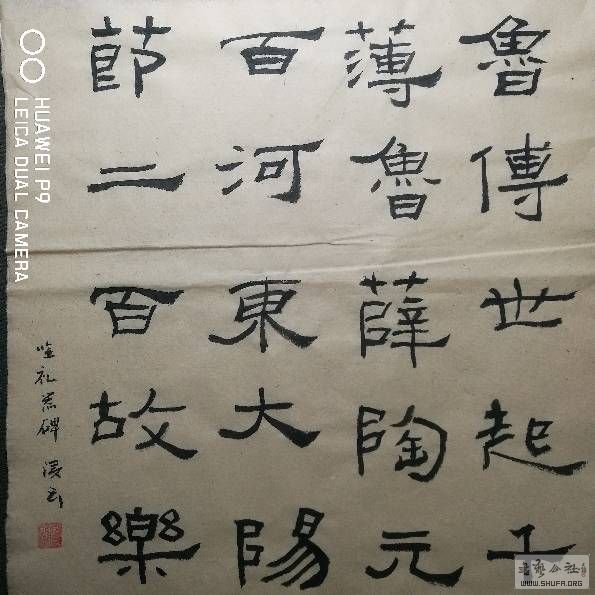 魯傅世起
薄魯薛陶元
百河東大陽
莭二百故樂
临礼器碑
HUAWEI P9
LEICA DUAL CAMERA
书家公社
WWW.SHUFA.ORG